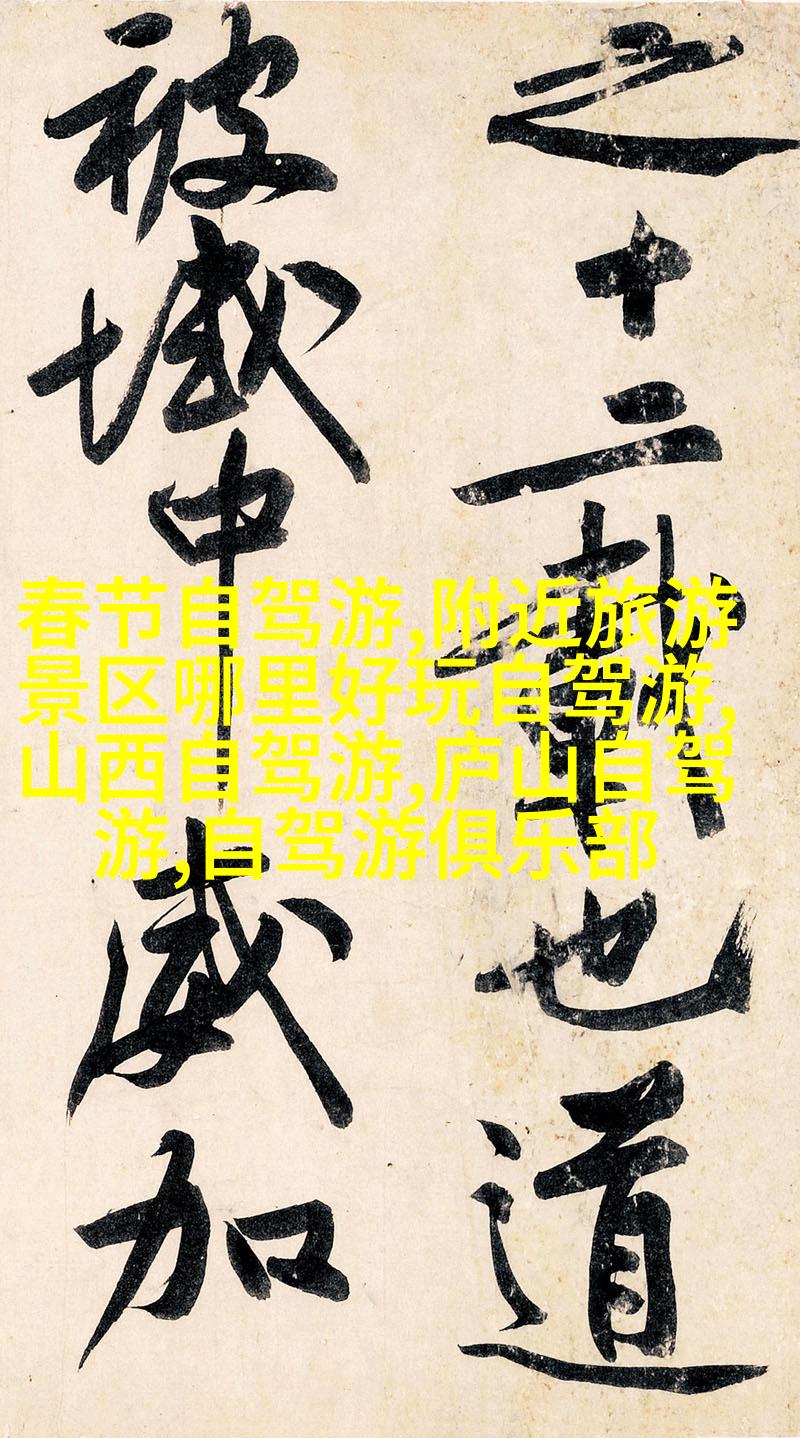 之十二載也道
被域中威加
春节自驾游,附近旅游
景区哪里好玩自驾游,
山西自驾游,庐山自驾
游,自驾游俱乐部